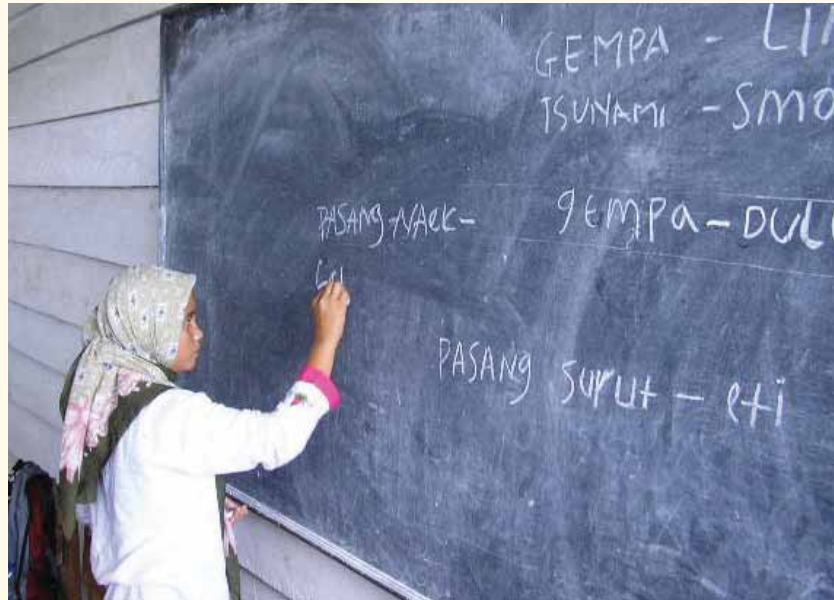 GEMPA - LIN
TSUNAMI - SMO
PASANG-NAEK-
gEMPa - DULU
PASANG SURUt - eti